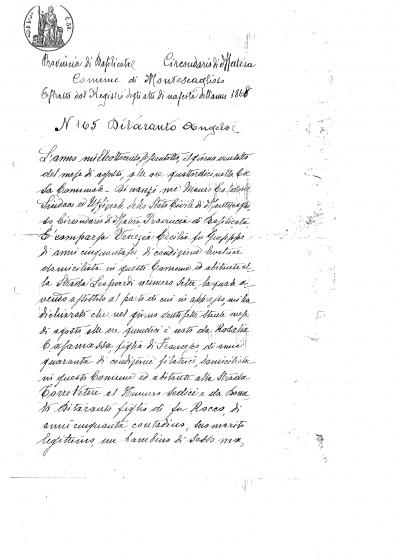 Provincia di Basilicata Circondario di Matera
Comune di Montescaglioso
Estratto dal Registro degli atti di nascita dell'anno 1868
N 165 Ditaranto Angelo
L'anno milleottocento sessantotto, il giorno
del mese di agosto, alle ore quattordici nella Ca
sa Comunale. Di nanzi me Mauro
Sindaco ed Uffiziale dello Stato Civile di Montescaglio
so Circondario di Matera Provincia di Basilicata
È comparsa Venezia Cecilia fu Giuseppe
di anni cinquantasei di condizione levatrice
domiciliata in questo Comune ed abitante al
la Strada Leopardi numero sette, la quale a-
vendo assistito al parto di cui in appresso mi ha
dichiarato che nel giorno ventisette stesso mese
di agosto alle ore quindici è nato da Rosalia
Casamassa figlia di Francesco di anni
quaranta di condizione filatrice domiciliata
in questo Comune ed abitante alla Strada
Torre Vetere al Numero Sedici e da Dona
to Ditaranto figlio di fu Rocco, di
anni cinquanta contadino, suo marito
legittimo, un bambino di sesso ma-